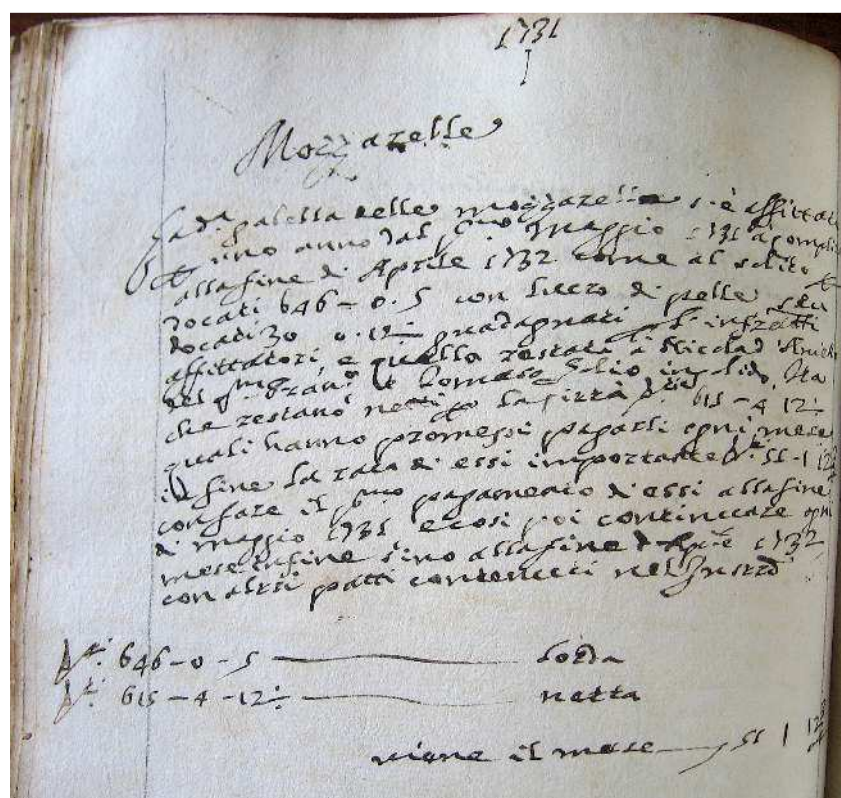 1731
Mozzarelle
La d.ª gabella delle mozzarelle s'è affittata
uno anno dal p.mo Maggio 1731 a
alla fine di Aprile 1732 come al solito
docati 646 = 0 . 5 con di pelle
docati 30 0.12 guadagnati
affittatori, e quello restati à Nicola d'
del Tomaso in solidum, Ita
che restano netti d.ti 615 - 4 12
quali hanno promessi pagarli ogni mese
in fine la rata di essi importante d.ti 51 - 1
con fare il p.mo pagamento di essi alla fine
di maggio 1731 e così poi continuare ogni
mese infine sino alla fine d'Ap.le 1732
con altri patti contenuti nel
d.ti 646 - 0 - 5 lorda
d.ti 615 - 4 - 12 netta
viene il mese 51 1